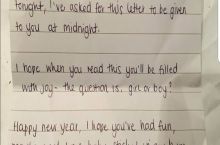 tonight, I've asked for this letter to be given
to you at midnight.
I hope when you read this you'll be filled
with joy - the question is. girl or boy?
Happy new year, I hope you've had fun,